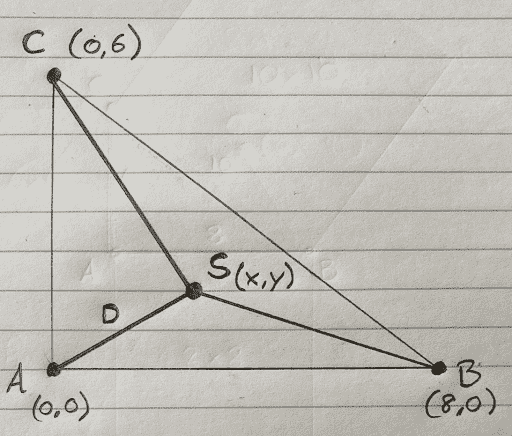 C (0,6)
S(x,y)
D
A
B
(0,0)
(8,0)